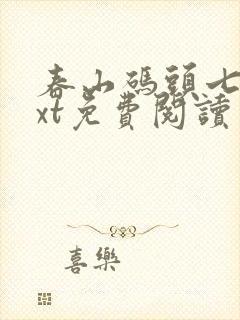 春山碼頭七
xt免費閱讀
喜樂